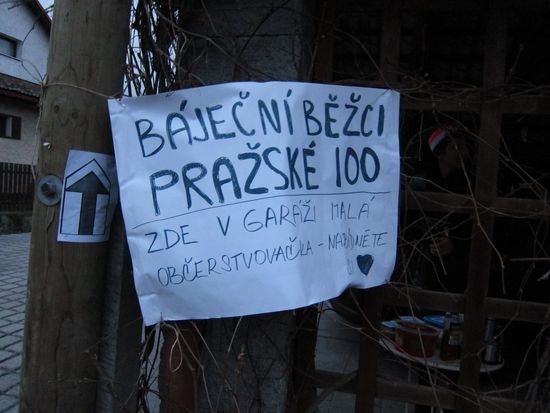 BÁJEČNÍ BĚŽCI
PRAŽSKÉ 100
ZDE V GARÁŽI MALÁ
OBČERSTVOVAČKA - NABÍDNĚTE